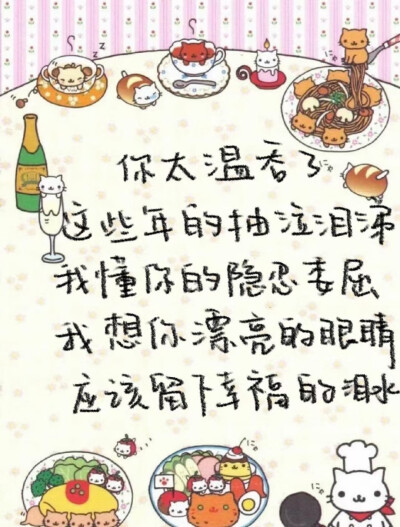 你太温吞了
这些年的抽泣泪涕
我懂你的隐忍委屈
我想你漂亮的眼睛
应该留下幸福的泪水